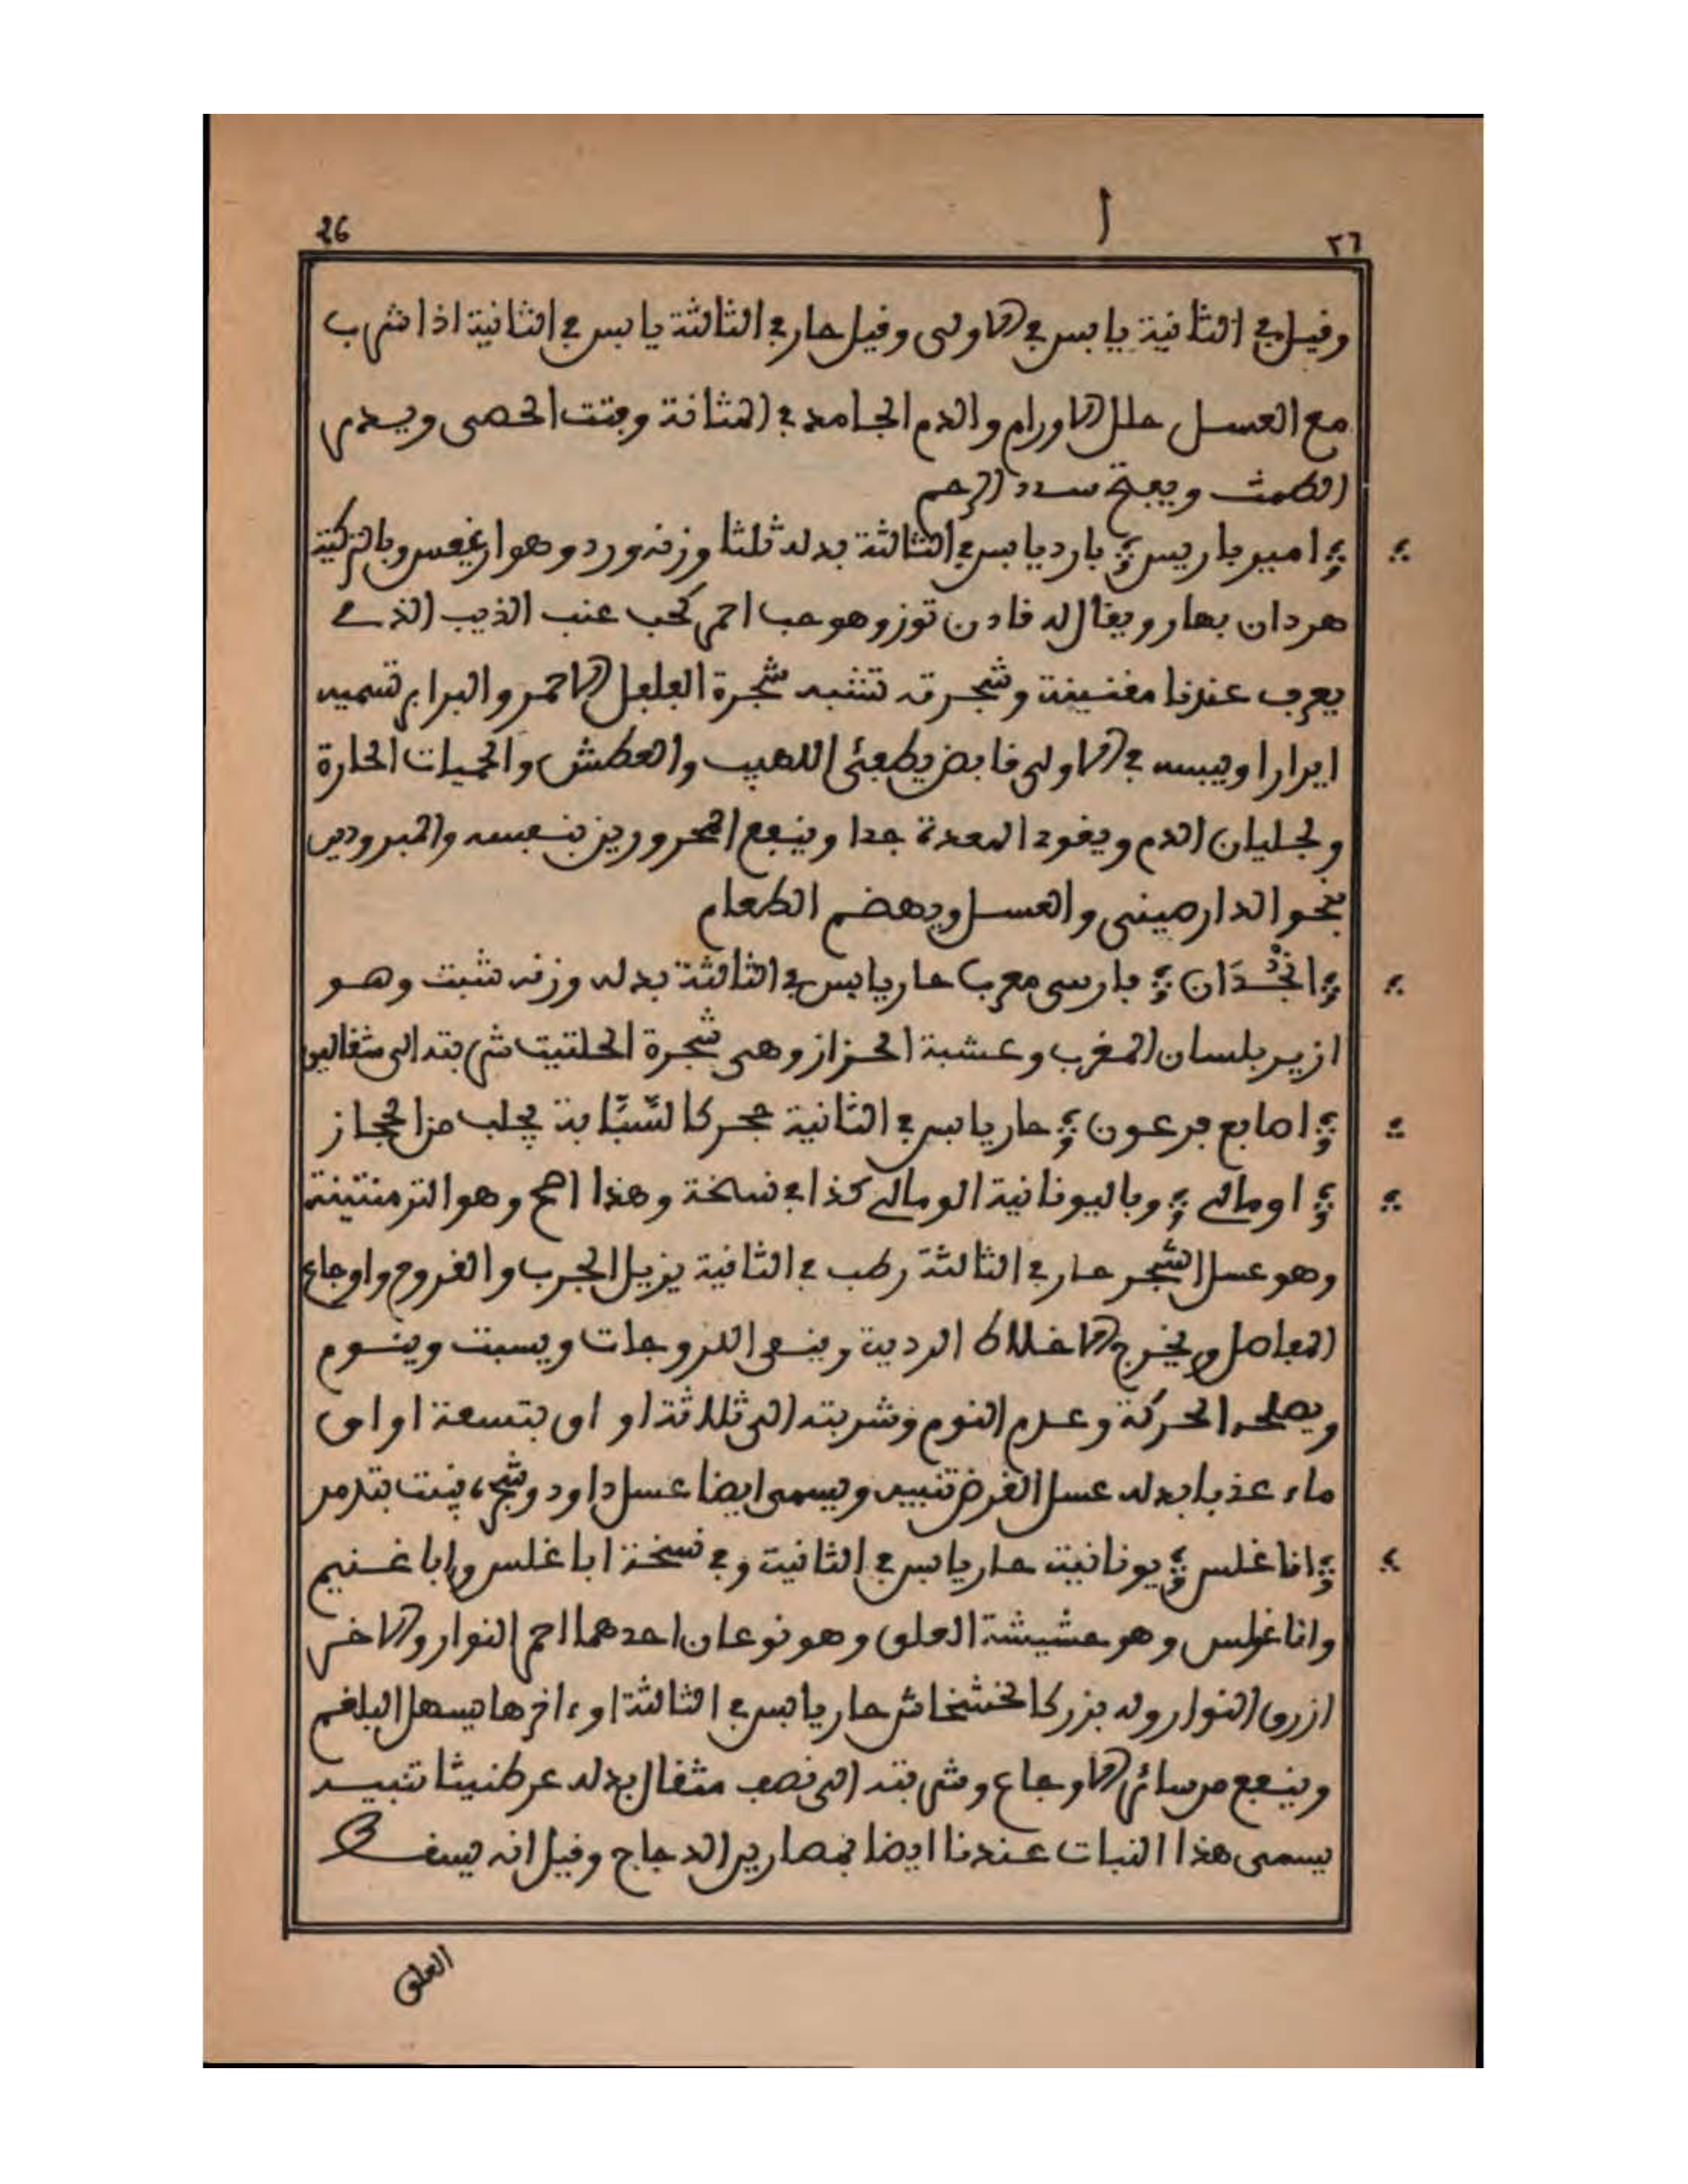 26
ا
٢٦
وقيل في الثانية يابس في الاولى وقيل حار في الثالثة يابس في الثانية اذا شرب
مع العسل حلل الاورام والدم الجامد في المثانة وفتت الحصى ويدر
الطمث ويفتح سدد الرحم
امير باريس بارد يابس في الثالثة بدله ثلثا وزنه ورد وهو ارغيس وبالتركية
هردان بهار ويقال له قادن توز وهو حب احمر كحب عنب الذيب الذي
يعرف عندنا مقنينة وشجرته تشبه شجرة الفلفل الاحمر والبرابر تسميه
ايرارا ويبسه في الاولى قابض يطفئ اللهيب والعطش والحميات الحارة
ولغليان الدم ويقوي المعدة جدا وينفع المحرورين بنفسه والمبرودين
بنحو الدارصيني والعسل ويهضم الطعام
انجُدَان فارسي معرب حار يابس في الثالثة بدله وزنه شبث وهو
ازير بلسان المغرب وعشبة الحزاز وهي شجرة الحلتيت شربته الى مثقالين
اصابع فرعون حار يابس في الثانية حجر كالسَّبَّابة يجلب من الحجاز
اومالي وباليونانية الومالي كذا في نسخة وهذا اصح وهو الترمنتينة
وهو عسل الشجر حار في الثالثة رطب في الثانية يزيل الجرب والقروح واوجاع
المفاصل ويخرج الاخلاط الردية وينقي اللزوجات ويسبت وينوم
ويصلحه الحركة وعدم النوم وشربته الى ثلاثة اواق بتسعة اواق
ماء عذبا بدله عسل القرض تنبيه ويسمى ايضا عسل داود وشجره ينبت بتدمر
اناغلس يونانية حار يابس في الثانية وفي نسخة اباغلس واباغنيم
واناغولس وهو حشيشة العلق وهو نوعان احدهما احمر النوار والاخر
ازرق النوار وله بزر كالخشخاش حار يابس في الثالثة او ءاخرها يسهل البلغم
وينفع من سائر الاوجاع وشربته الى نصف مثقال بدله عرطنيثا تنبيه
يسمى هذا النبات عندنا ايضا بمصارير الدجاج وقيل انه يسقط
العلق